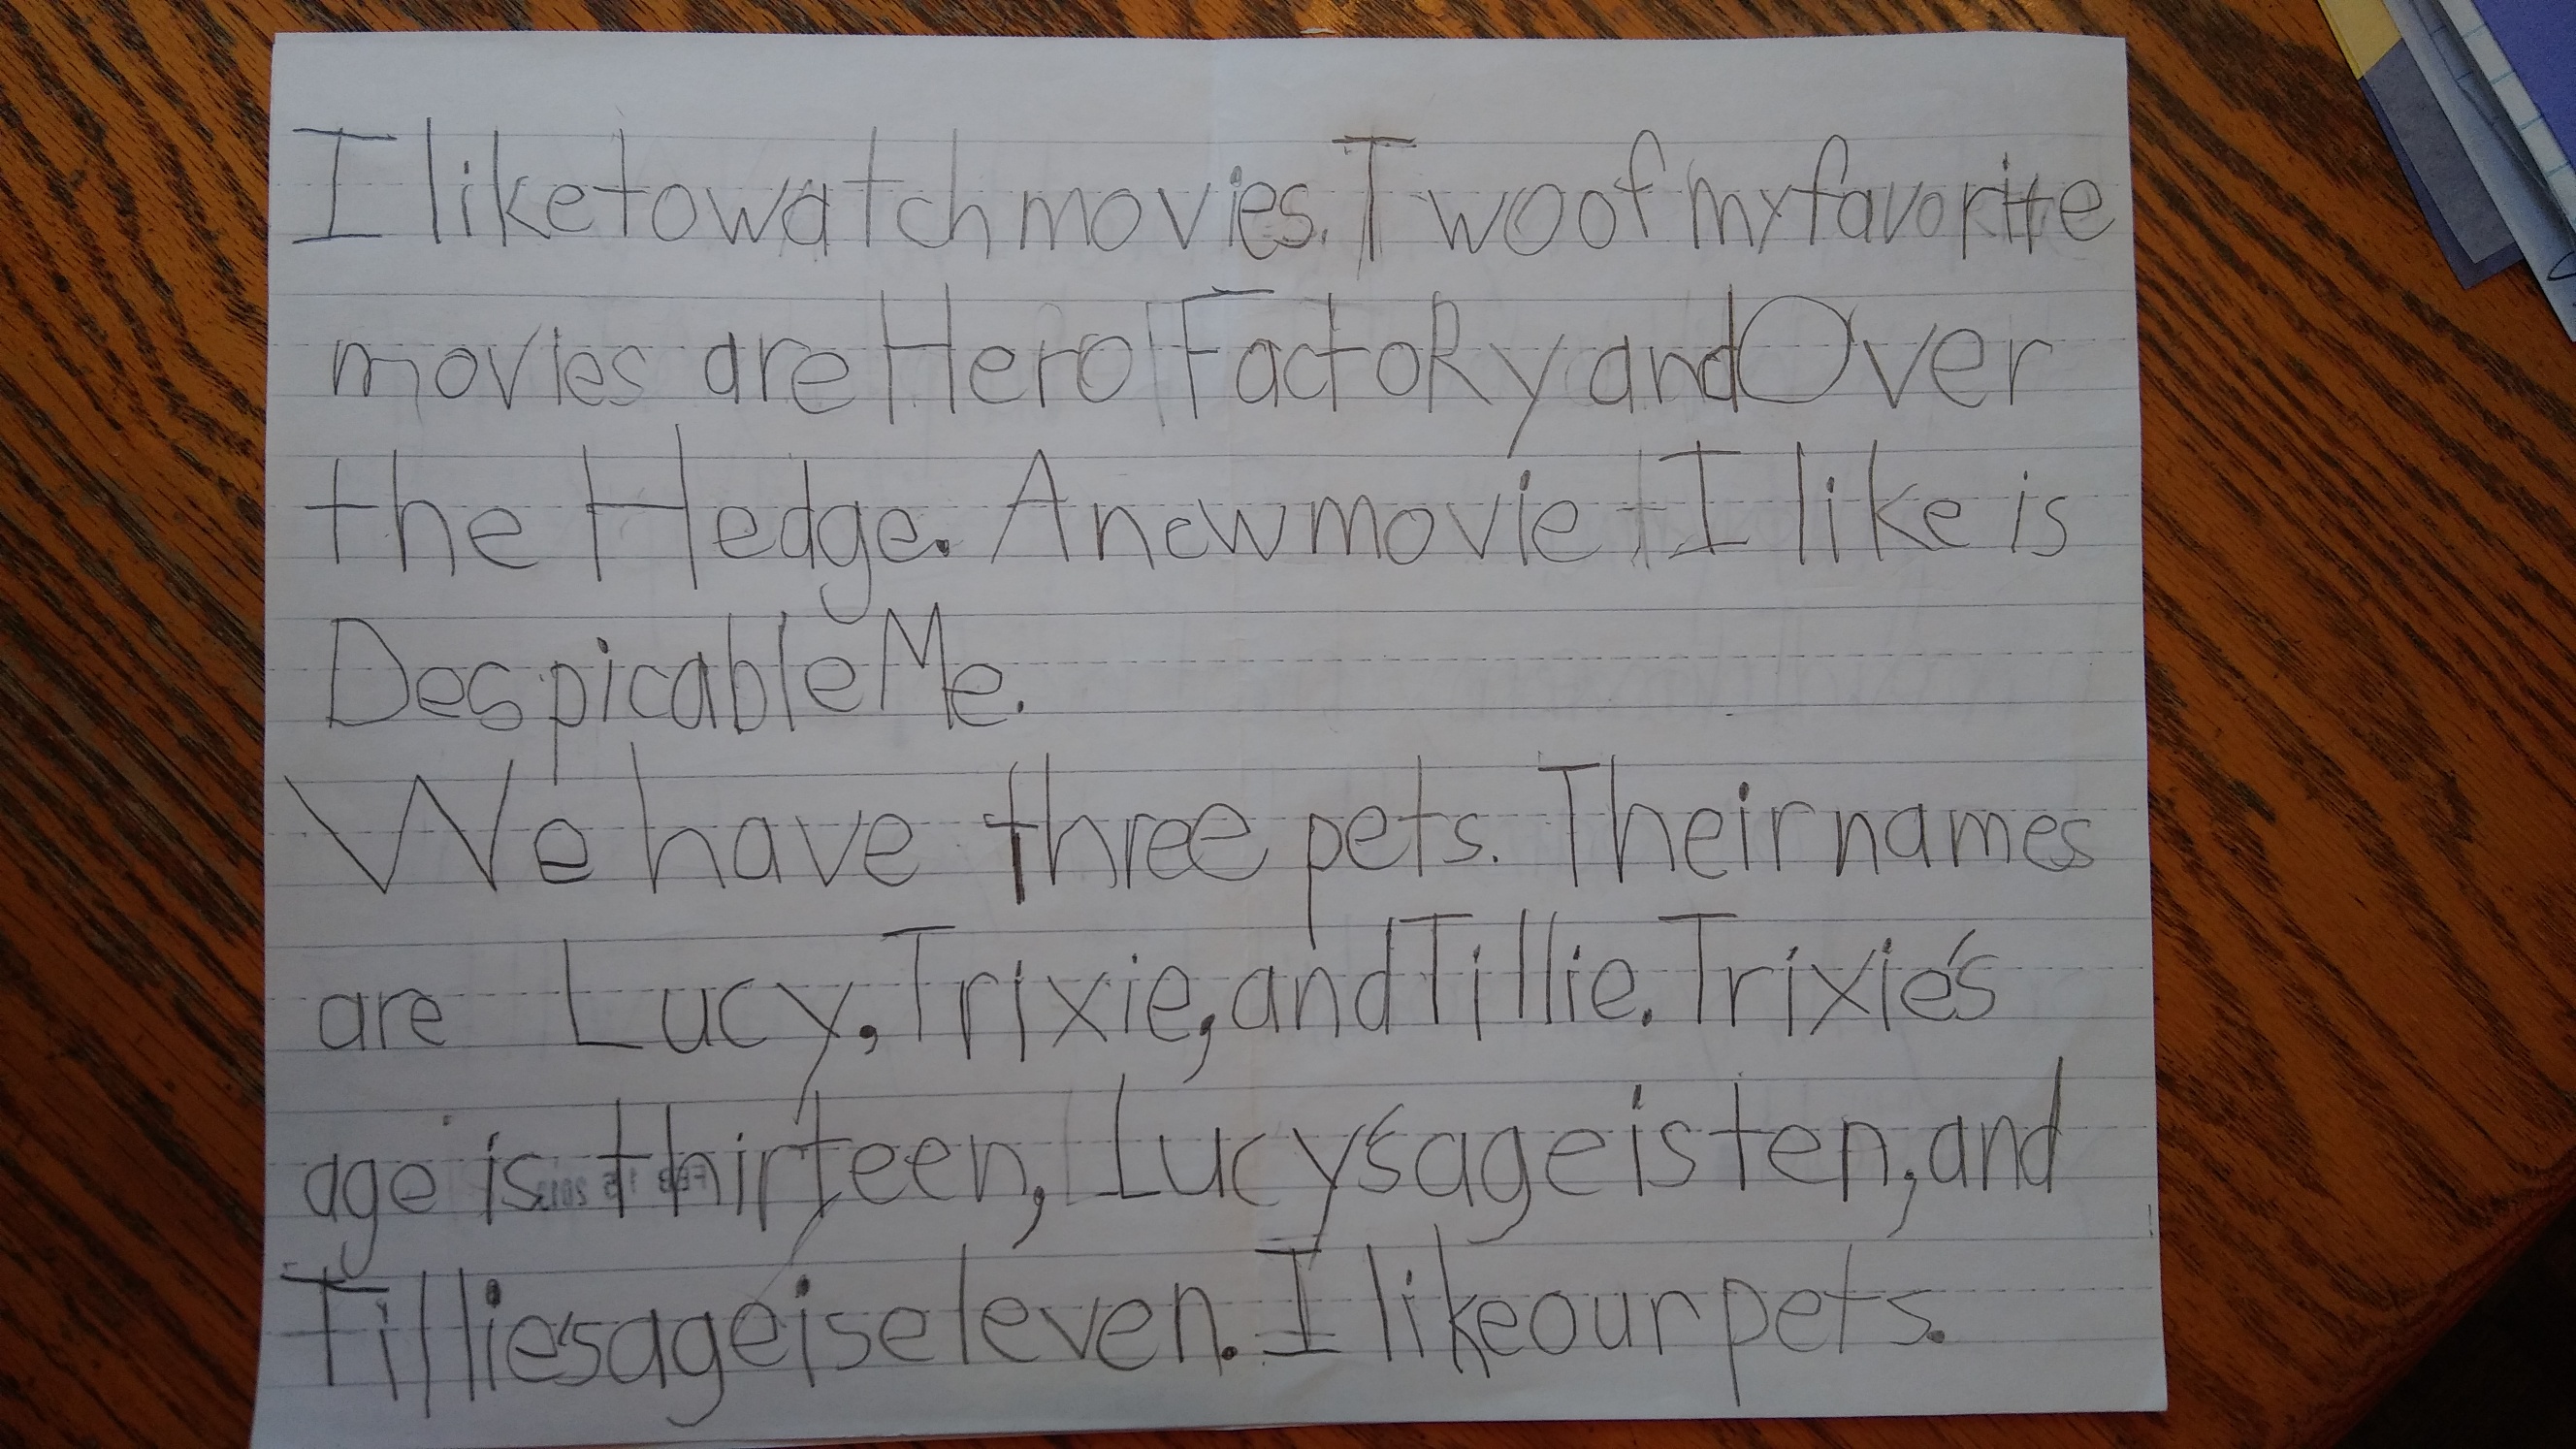 I like to watch movies. Two of my favorite
movies are Hero FactoRy and Over
the Hedge. A new movie I like is
Despicable Me.
We have three pets. Their names
are Lucy, Trixie, and Tillie. Trixie's
age is thirteen, Lucy's age is ten, and
Tillie's age is eleven. I like our pets.